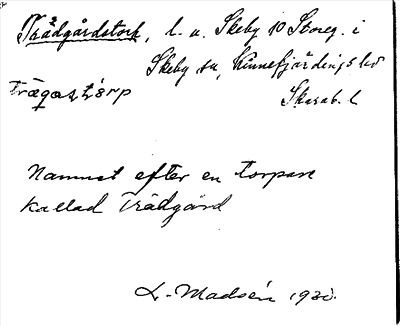 Trädgårdstorp, l. u. Skeby 10 Storeg. i
Skeby sn, Kinnefjärdings hd
Skarab. l
trägastörp
Namnet efter en torpare
kallad Trädgård
L. Madsén 1930.